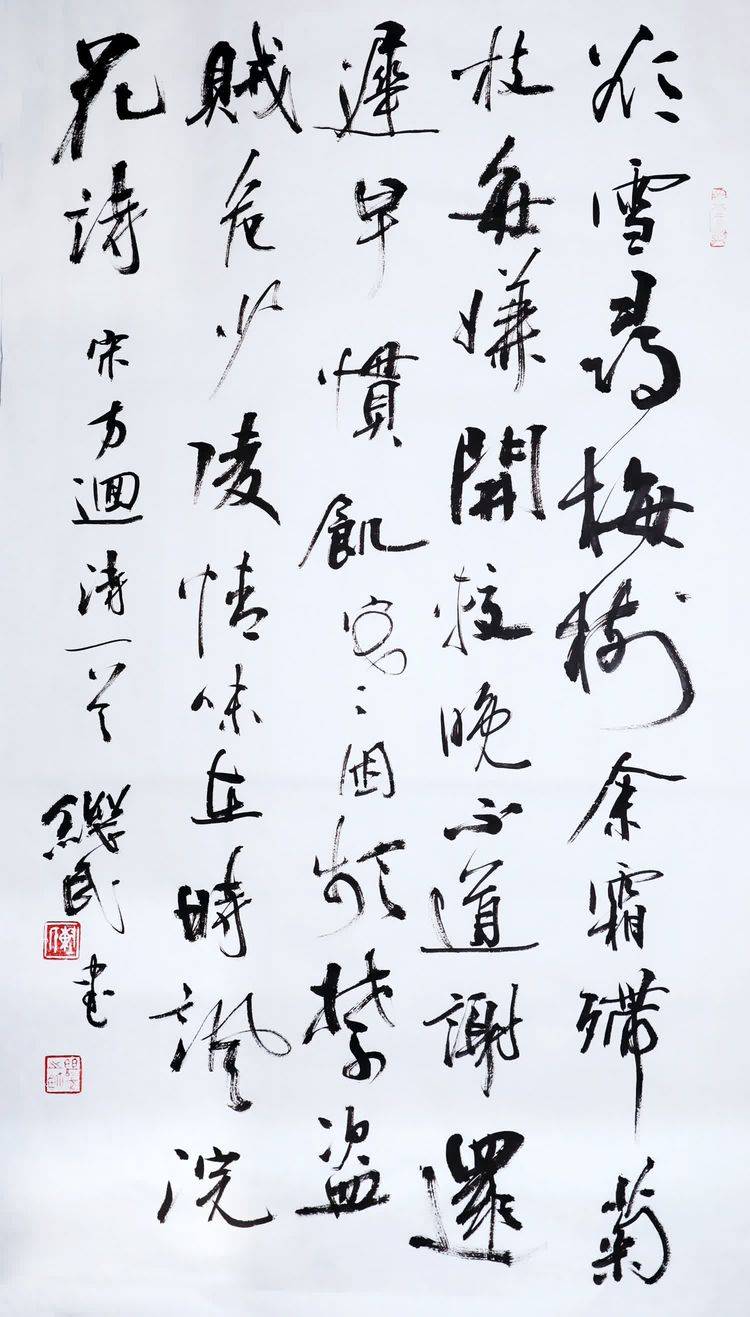 欲雪尋梅樹余霜殢菊
枝每嫌開較晚不道謝還
遲早慣飢寒困頻禁盜
賊危少陵情味在時諷浣
花詩 宋方迴詩一首 繼民書